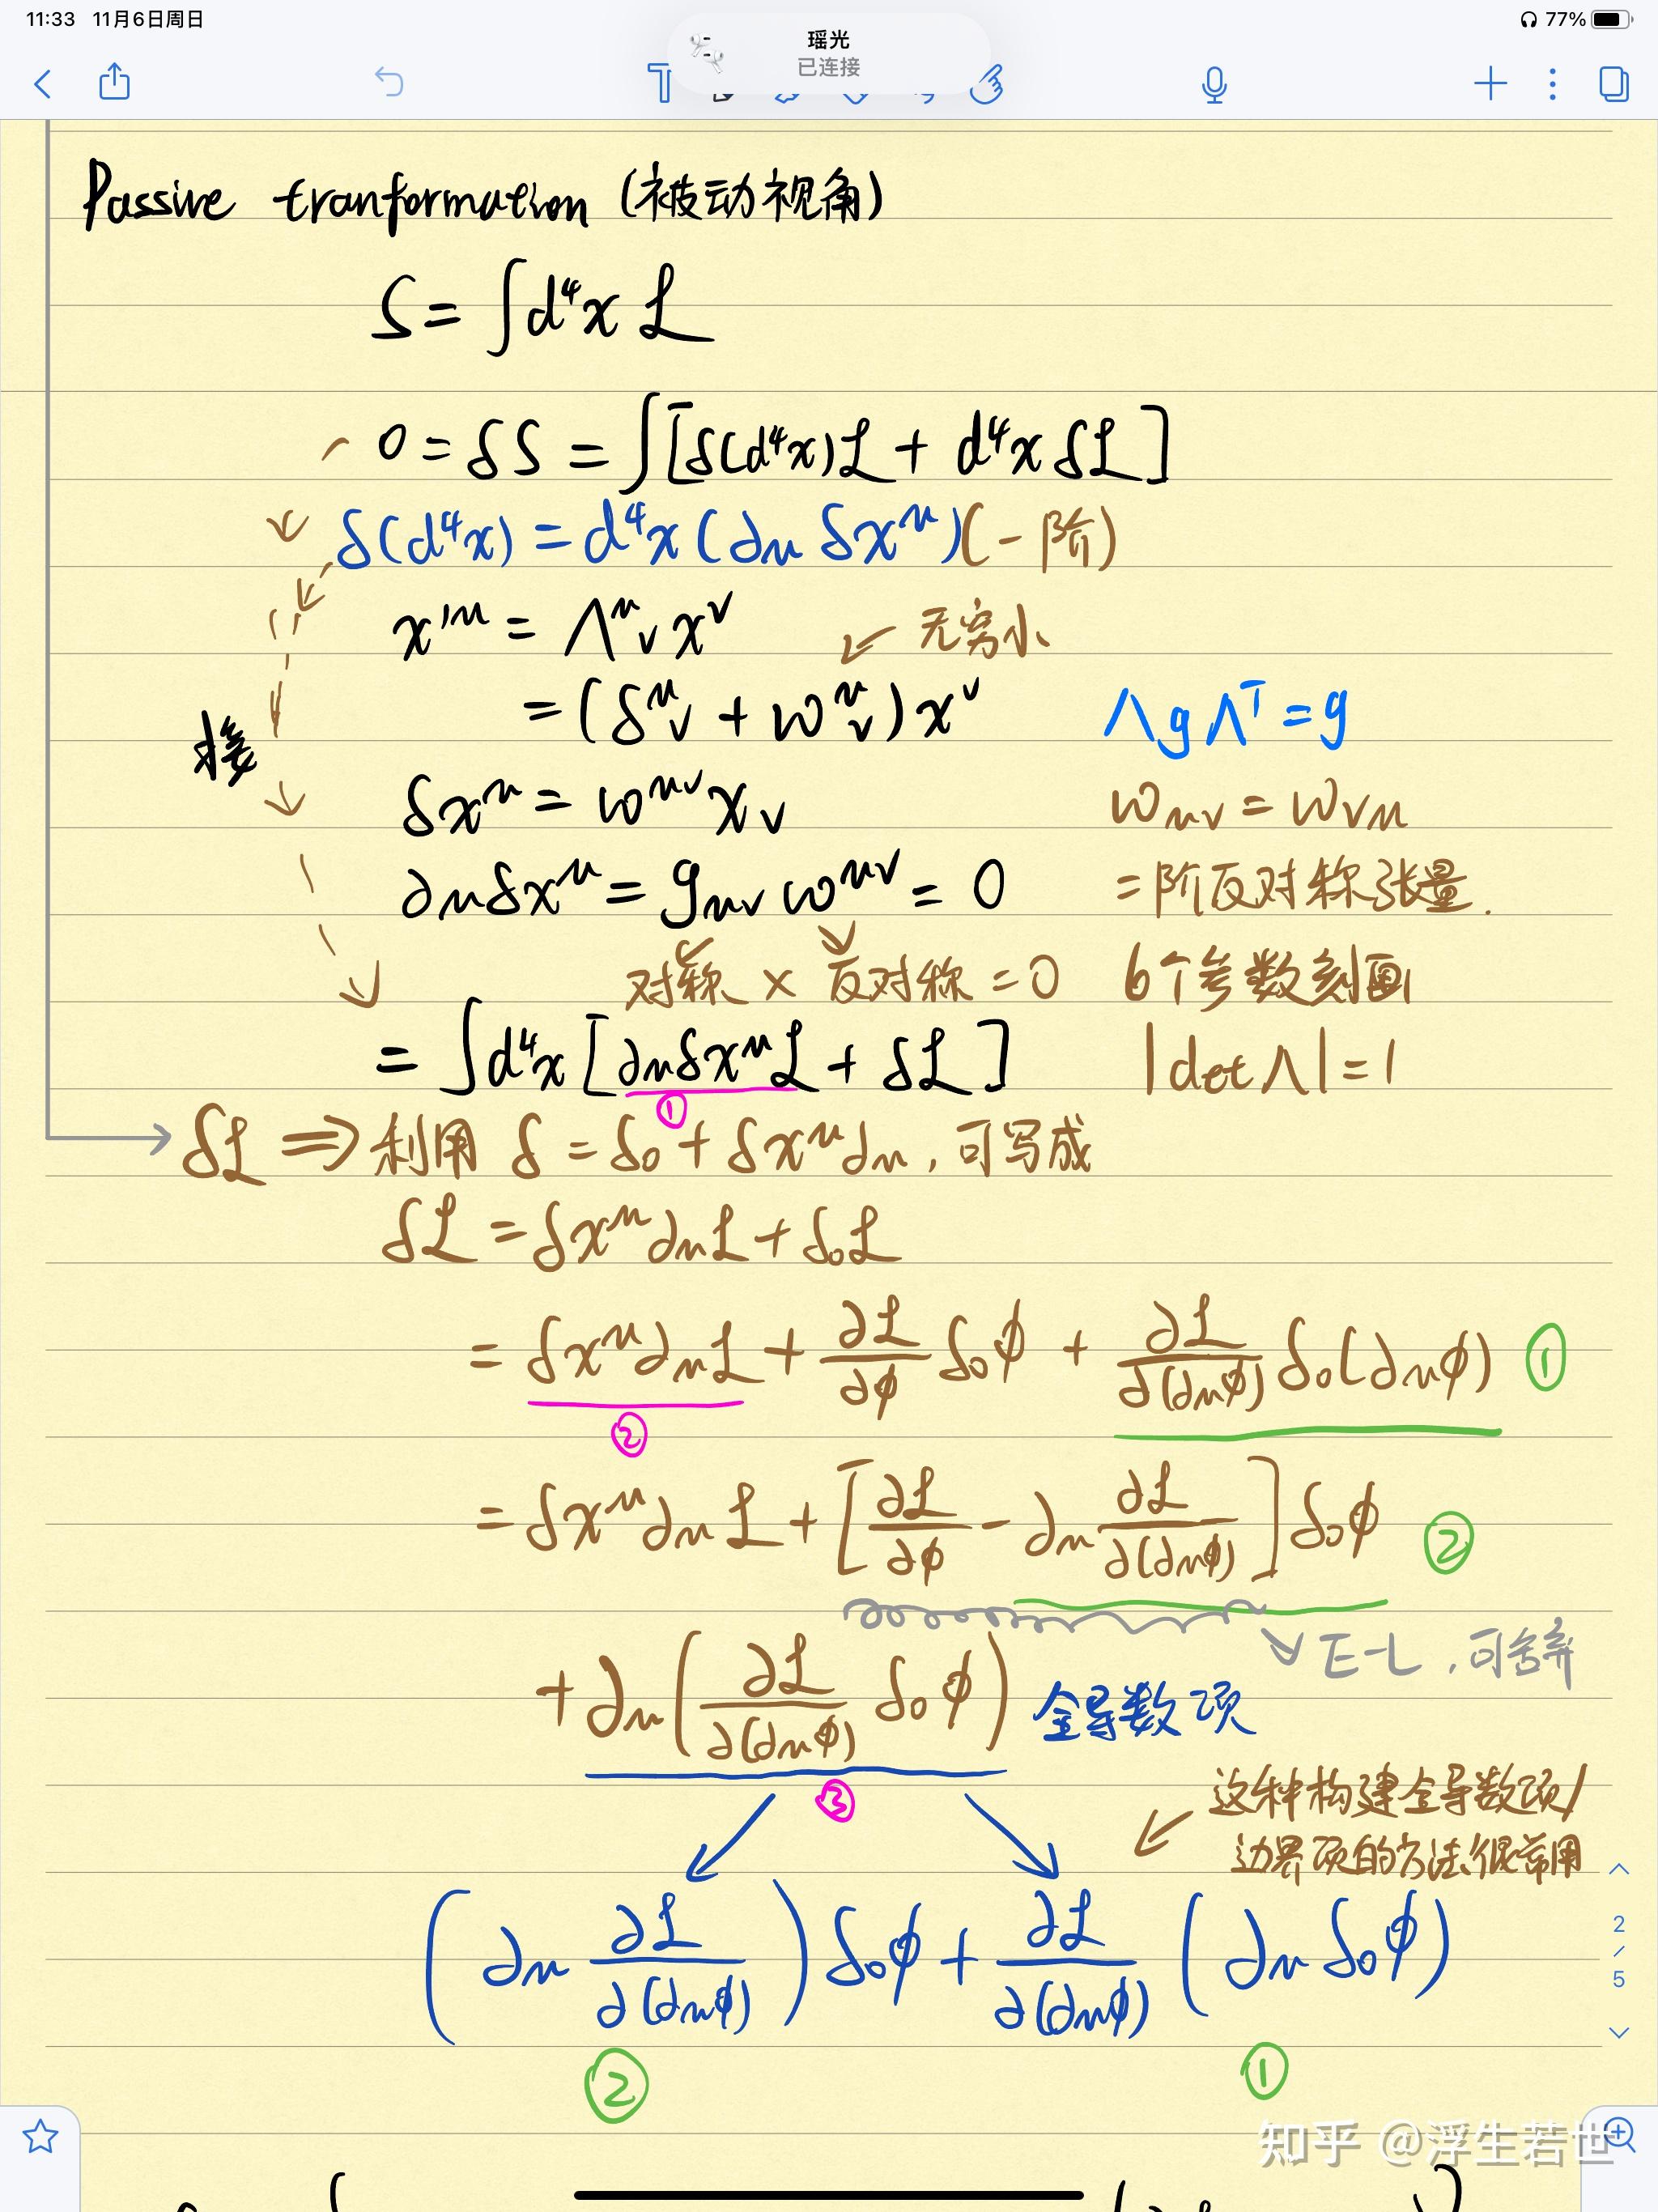 11:33 11月6日周日
77%
瑶光
已连接
Passive tranformation (被动视角)
S = ∫d⁴x ℒ
0 = δS = ∫[δ(d⁴x)ℒ + d⁴x δℒ]
δ(d⁴x) = d⁴x (∂μ δx^μ) (一阶)
x'^μ = Λ^μ_ν x^ν
无穷小
= (δ^μ_ν + ω^μ_ν) x^ν
Λ g Λ^T = g
接
δx^μ = ω^{μν} x_ν
ω_{μν} = ω_{νμ}
∂μ δx^μ = g_{μν} ω^{μν} = 0
二阶反对称张量.
对称 × 反对称 = 0
6个参数刻画
= ∫d⁴x [∂μ δx^μ ℒ + δℒ]
|det Λ| = 1
①
δℒ ⇒ 利用 δ = δ₀ + δx^μ ∂μ, 可写成
δℒ = δx^μ ∂μ ℒ + δ₀ℒ
= δx^μ ∂μ ℒ + ∂ℒ/∂φ δ₀φ + ∂ℒ/∂(∂μφ) δ₀(∂μφ) ①
②
= δx^μ ∂μ ℒ + [∂ℒ/∂φ - ∂μ ∂ℒ/∂(∂μφ)] δ₀φ ②
E-L, 可舍弃
+ ∂μ (∂ℒ/∂(∂μφ) δ₀φ) 全导数项
③
这种构建全导数项/
边界项的方法很常用
(∂μ ∂ℒ/∂(∂μφ)) δ₀φ + ∂ℒ/∂(∂μφ) (∂μ δ₀φ)
2/5
② ①
知乎 @浮生若世